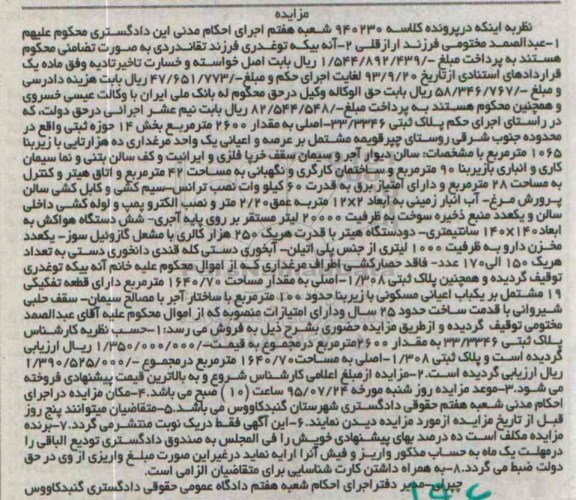 مزایده
نظر به اینکه درپرونده کلاسه ۹۴۰۲۳۰ شعبه هفتم اجرای احکام مدنی این دادگستری محکوم علیهم
۱-عبدالصمد مختومی فرزند ارازقلی ۲-آنه بیکه توغدری فرزند تقاندردی به صورت تضامنی محکوم
هستند به پرداخت مبلغ -/۱/۵۴۴/۸۹۲/۴۳۹ ریال بابت اصل خواسته و خسارت تاخیرتادیه وفق ماده یک
قراردادهای استنادی ازتاریخ ۹۳/۹/۲۰ لغایت اجرای حکم و مبلغ-/۴۷/۶۵۱/۷۷۳ ریال بابت هزینه دادرسی
و مبلغ -/۵۸/۳۴۶/۷۶۷ ریال بابت حق الوکاله وکیل درحق محکوم له بانک ملی ایران با وکالت عیسی خسروی
و همچنین محکوم هستند به پرداخت مبلغ-/۸۲/۵۴۴/۵۴۸ ریال بابت نیم عشر اجرائی درحق دولت، که
در راستای اجرای حکم پلاک ثبتی ۳۳/۳۳۴۶-اصلی به مقدار ۲۶۰۰ مترمربع بخش ۱۴ حوزه ثبتی واقع در
محدوده جنوب شرقی روستای چپرقویمه مشتمل بر عرصه و اعیانی یک واحد مرغداری ده هزارتایی با زیربنا
۱۰۶۵ مترمربع با مشخصات: سالن دیوار آجر و سیمان سقف خرپا فلزی و ایرانیت و کف سالن بتنی و نما سیمان
کاری و انباری بازیربنا ۹۰ مترمربع و ساختمان کارگری و نگهبانی به مساحت ۴۲ مترمربع و اتاق هیتر و کنترل
به مساحت ۲۸ مترمربع و دارای امتیاز برق به قدرت ۶۰ کیلو وات نصب ترانس-سیم کشی و کابل کشی سالن
پرورش مرغ- آب انبار زمینی به ابعاد ۲×۱۲ متر به عمق ۲/۲۰ متر و نصب الکترو پمپ و لوله کشی داخلی
سالن و یکعدد منبع ذخیره سوخت به ظرفیت ۲۰۰۰۰ لیتر مستقر بر روی پایه آجری- شش دستگاه هواکش به
ابعاد ۱۴۰×۱۴۰ سانتیمتری- دودستگاه هیتر با قدرت هریک ۲۵۰ هزار کالری با مشعل گازوئیل سوز- یکعدد
مخزن دارو به ظرفیت ۱۰۰۰ لیتری از جنس پلی اتیلن- آبخوری دستی کله قندی دانخوری دستی به تعداد
هریک ۱۵۰ الی ۱۷۰ عدد- فاقد حصارکشی اطراف مرغداری که از اموال محکوم علیه خانم آنه بیکه توغدری
توقیف گردیده و همچنین پلاک ثبتی ۱/۳۰۸-اصلی به مقدار مساحت ۱۶۴۰/۷۰ مترمربع دارای قطعه تفکیکی
۱۹ مشتمل بر یکباب اعیانی مسکونی با زیربنا حدود ۱۰۰ مترمربع با ساختار آجر با مصالح سیمان- سقف حلبی
شیروانی با قدمت ساخت حدود ۲۵ سال ودارای امتیازات منصوبه که از اموال محکوم علیه آقای عبدالصمد
مختومی توقیف گردیده و ازطریق مزایده حضوری بشرح ذیل به فروش می رسد:۱-حسب نظریه کارشناس
پلاک ثبتی ۳۳/۳۳۴۶ به مقدار ۲۶۰۰مترمربع درمجموع به قیمت-/۱/۳۵۰/۰۰۰/۰۰۰ ریال ارزیابی
گردیده است و پلاک ثبتی ۱/۳۰۸-اصلی به مساحت۱۶۴۰/۷۰ مترمربع درمجموع -/۱/۳۹۰/۵۲۵/۰۰۰
ریال ارزیابی گردیده است.۲-مزایده ازمبلغ اعلامی کارشناس شروع و به بالاترین قیمت پیشنهادی فروخته
می شود.۳-موعد مزایده روز شنبه مورخه ۹۵/۰۷/۲۴ ساعت (۱۰) صبح می باشد.۴-مکان مزایده در اجرای
احکام مدنی شعبه هفتم حقوقی دادگستری شهرستان گنبدکاووس می باشد.۵-متقاضیان میتوانند پنج روز
قبل از تاریخ مزایده از مورد مزایده دیدن نمایند.۶-این آگهی فقط دریک نوبت منتشر می گردد.۷-برنده
مزایده مکلف است ده درصد بهای پیشنهادی خویش را فی المجلس به صندوق دادگستری تودیع الباقی را
درمهلت یک ماه به حساب مذکور واریز و فیش آنرا ارایه نماید درغیراین صورت مبلغ واریزی از وی در حق
دولت ضبط می گردد.۸-به همراه داشتن کارت شناسایی برای متقاضیان الزامی است.
چپری-مدیر دفتر اجرای احکام شعبه هفتم دادگاه عمومی حقوقی دادگستری گنبدکاووس